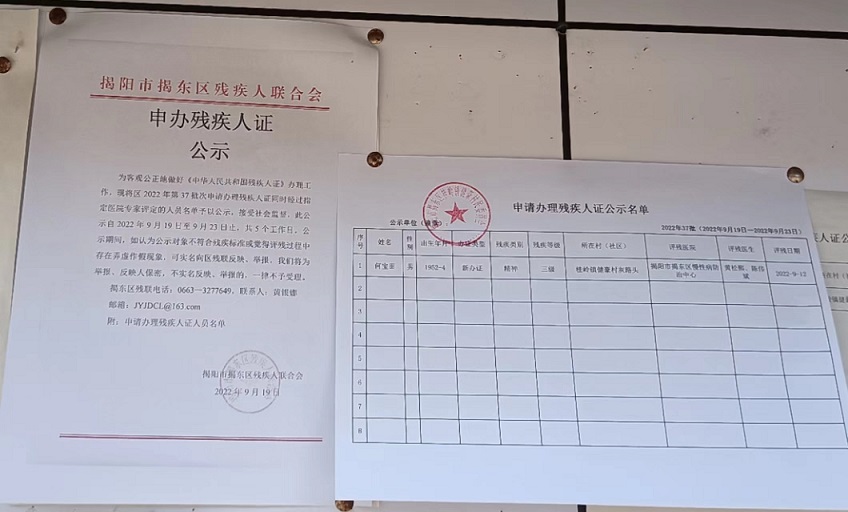 揭阳市揭东区残疾人联合会
申办残疾人证
公示
为客观公正地做好《中华人民共和国残疾人证》办理工
作，现将区2022年第37批次申请办理残疾人证同时经过指
定医院专家评定的人员名单予以公示，接受社会监督。此公
示自2022年9月19日至9月23日止，共5个工作日。公
示期间，如认为公示对象不符合残疾标准或觉得评残过程中
存在弄虚作假现象，可实名向区残联反映、举报，我们将为
举报、反映人保密，不实名反映、举报的，一律不予受理。
揭东区残联电话：0663—3277649，联系人：黄银娜
邮箱：JYJDCL@163.com
附：申请办理残疾人证人员名单
揭阳市揭东区残疾人联合会
2022年9月19日
申请办理残疾人证公示名单
公示单位（盖章） 2022年37批（2022年9月19日—2022年9月23日）
序号 姓名 性别 出生年月 办证类型 残疾类别 残疾等级 所在村（社区） 评残医院 评残医生 评残日期
1 何宝 1952-4 新办证 精神 三级 桂岭镇 村灰路头 揭阳市揭东区慢性病防治中心 2022-9-12
2
3
4
5
6
7
8